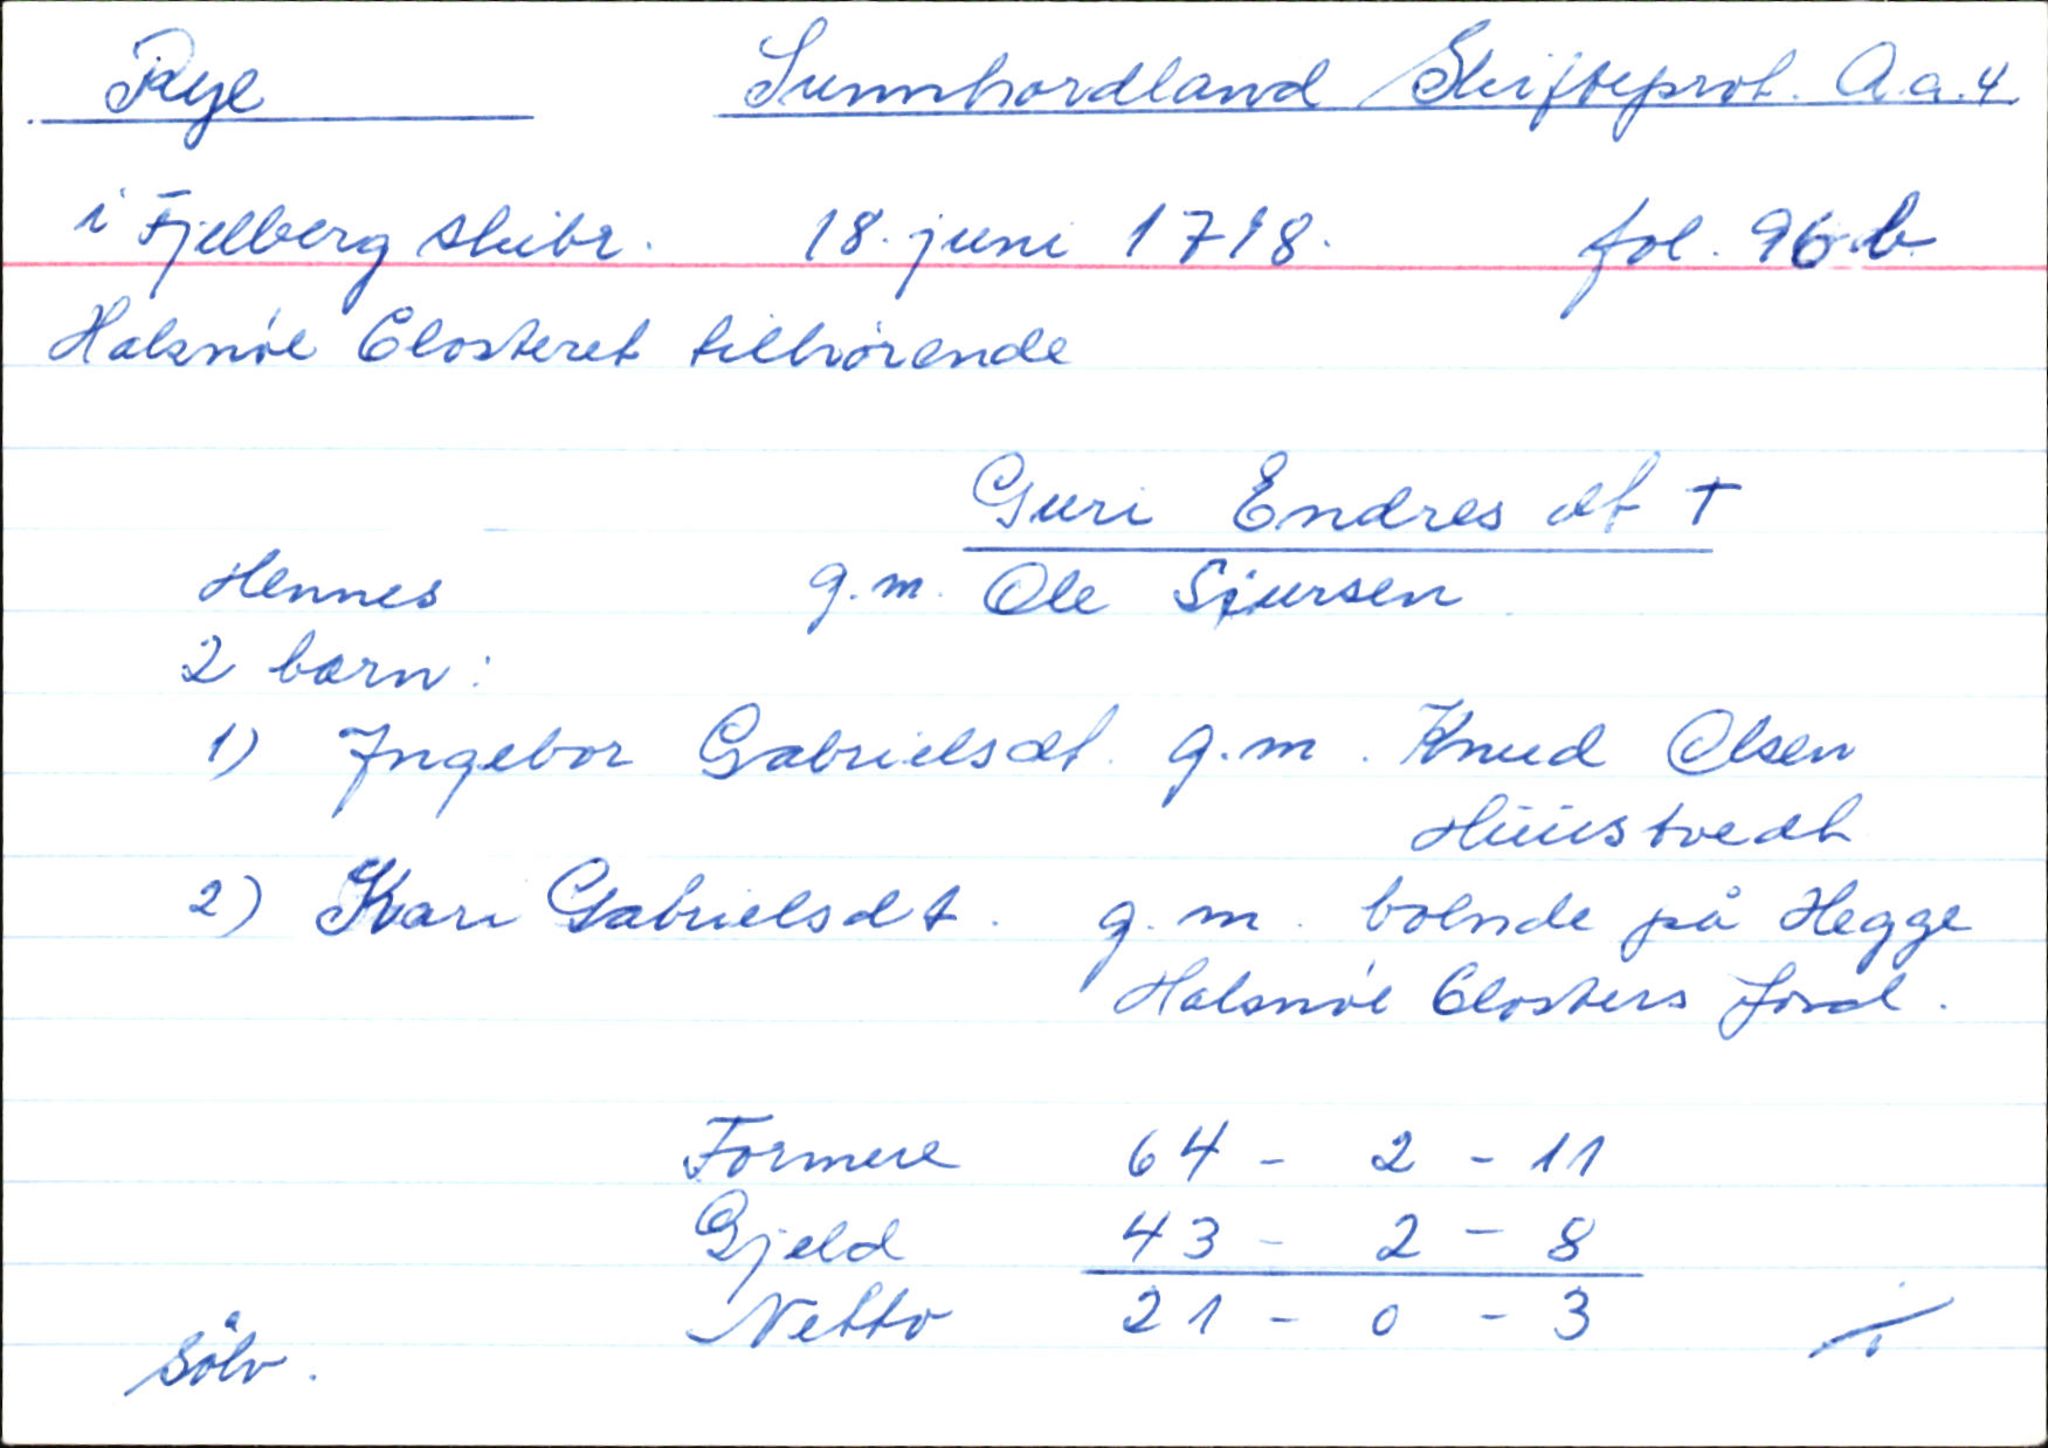 Rye Sunnhordland Skifteprot. A.a.4
i Fjelberg skibr. 18. juni 1718. fol. 96 b
Halsnöe Closteret tilhörende
Guri Endres dt †
Hennes g.m. Ole Siursen
2 børn:
1) Ingebor Gabrielsdt. g.m. Knud Olsen
Hüüstvedt
2) Kari Gabrielsdt. g.m. boende på Hegge
Halsnöe Closters jord.
Formue 64 - 2 - 11
Gjeld 43 - 2 - 8
Netto 21 - 0 - 3
Sölv.